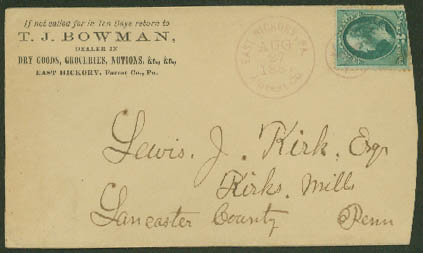 If not called for in Ten Days return to
T. J. BOWMAN,
DEALER IN
DRY GOODS, GROCERIES, NOTIONS, &c., &c.,
EAST HICKORY, Forest Co., Pa.
EAST HICKORY, PA.
AUG
Lewis. J. Kirk. Esq
Kirks Mills
Lancaster County Penn